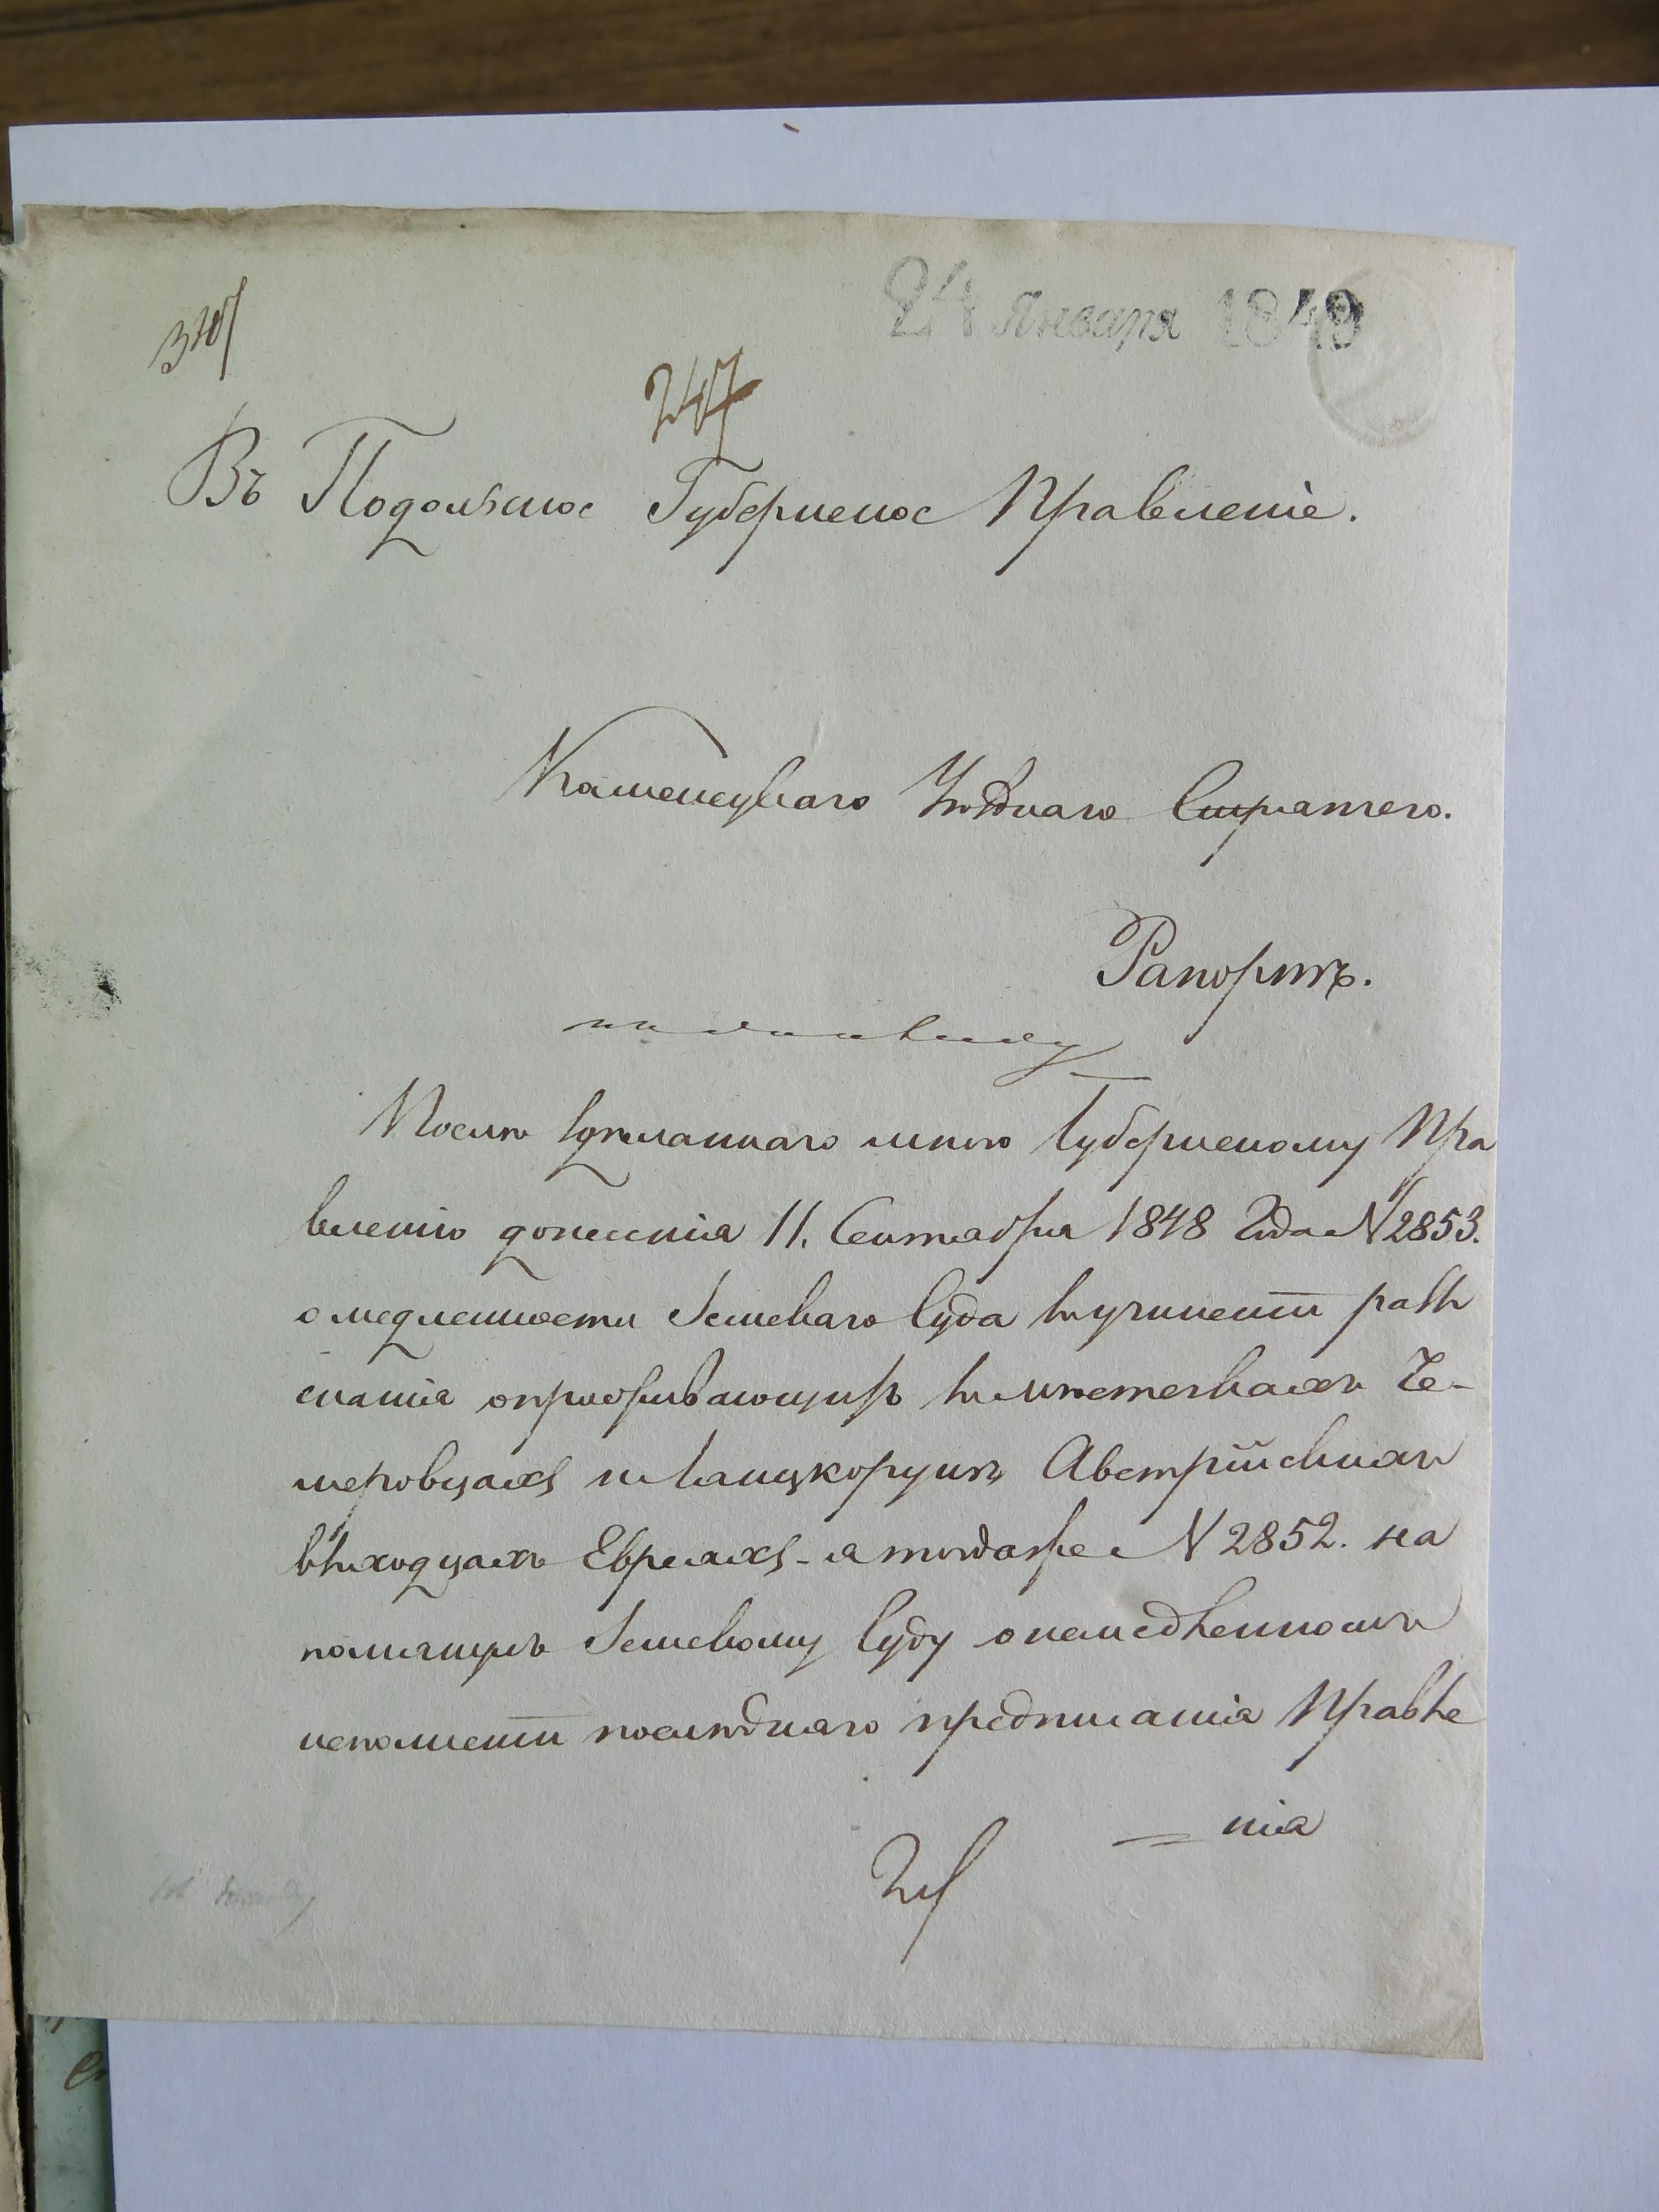 24 Января 1849
247
Въ Подольское Губернское Правленіе.
Каменецкаго Уѣзднаго Стряпчего.
Рапортъ.
Послѣ сдѣланнаго мною Губернскому Пра
вленію донесенія 11. Сентября 1848 Года N 2853.
о медленности Земскаго Суда въ учиненіи разы
сканія о проживающихъ въ мѣстечкахъ Че-
меровцахъ и Ланцкорунѣ Австрійскихъ
выходцахъ Евреяхъ - а тогоже N 2852. на
помянулъ Земскому Суду о немедленномъ
исполненіи послѣднаго предписанія Правле
нія